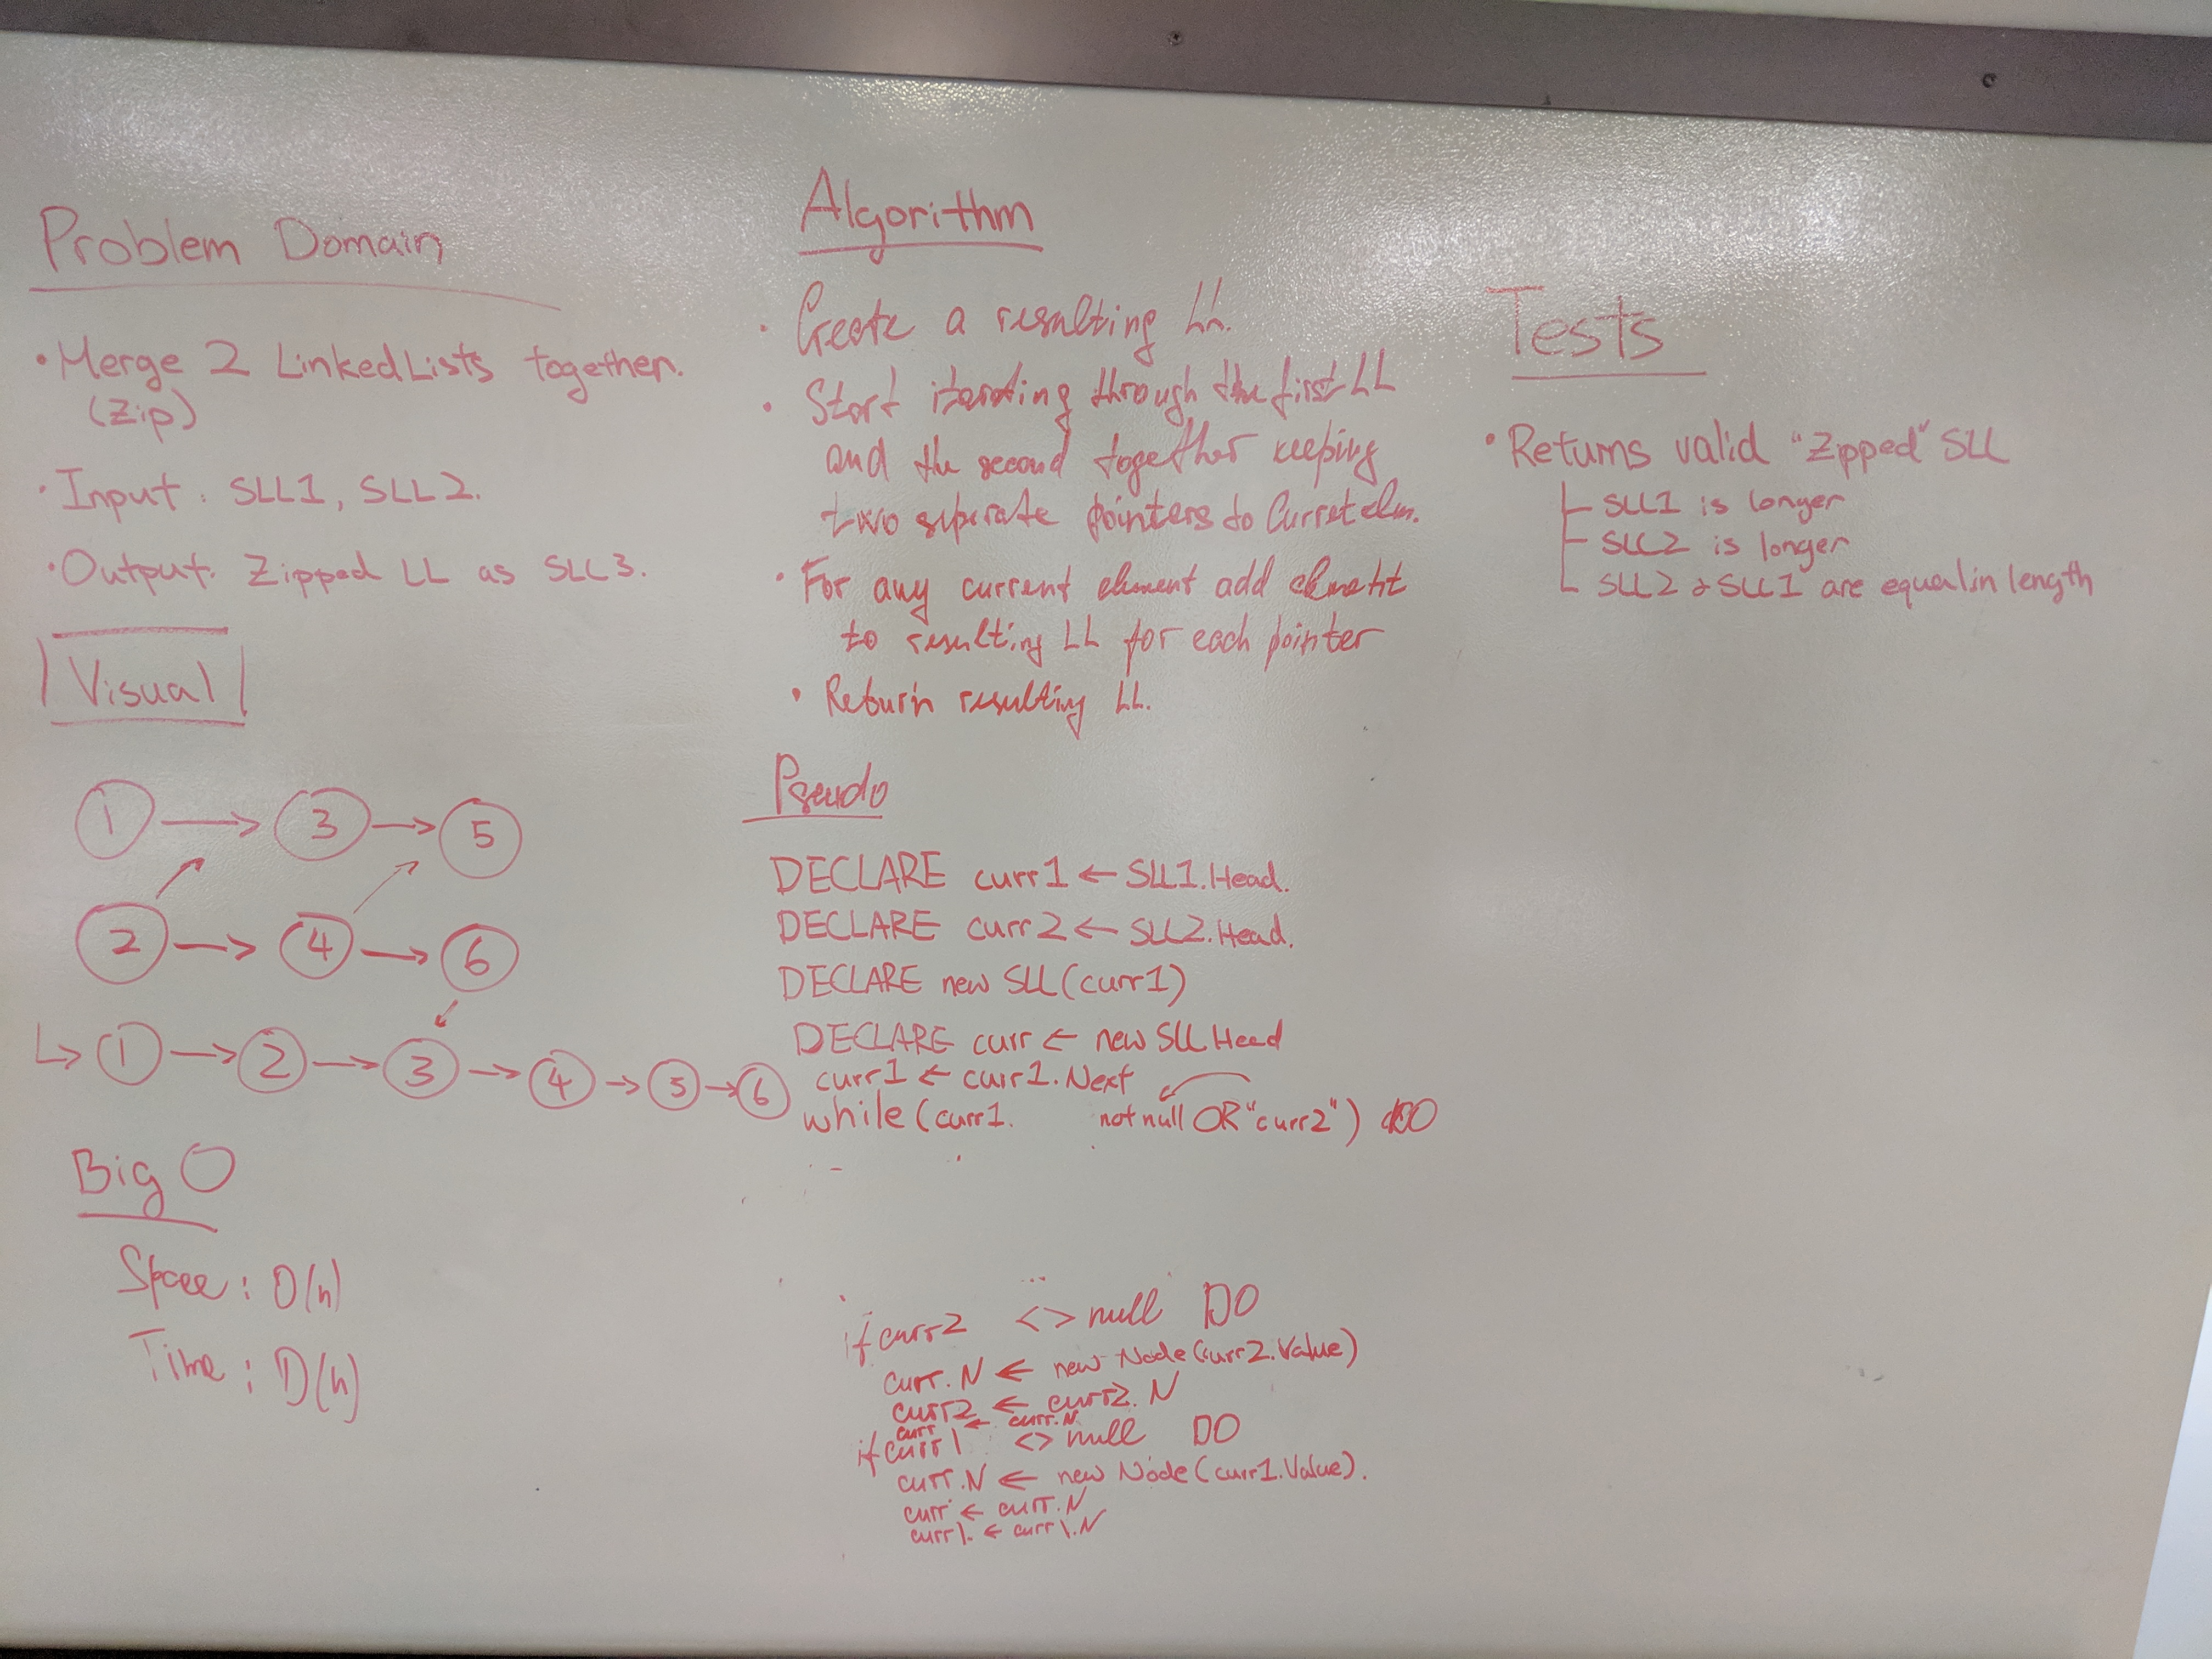 Problem Domain
• Merge 2 LinkedLists together.
(Zip)
• Input: SLL1, SLL2.
• Output: Zipped LL as SLL3.
Visual
1 → 3 → 5
2 → 4 → 6
↳ 1 → 2 → 3 → 4 → 5 → 6
Big O
Space: O(n)
Time: O(n)
Algorithm
• Create a resulting LL.
• Start iterating through the first LL
and the second together keeping
two seperate pointers to elm.
• For any current element add
to resulting LL for each pointer
• Return resulting LL.
Pseudo
DECLARE curr1 ← SLL1.Head.
DECLARE curr2 ← SLL2.Head.
DECLARE new SLL(curr1)
DECLARE curr ← new SLL Head
curr1 ← curr1.Next
while (curr1. not null OR "curr2") DO
if curr2 <> null DO
curr.N ← new Node(curr2.Value)
curr2 ← curr2.N
curr ← curr.N
if curr1 <> null DO
curr.N ← new Node(curr1.Value).
curr ← curr.N
curr1. ← curr1.N
Tests
• Returns valid "Zipped" SLL
SLL1 is longer
SLL2 is longer
SLL2 & SLL1 are equal in length